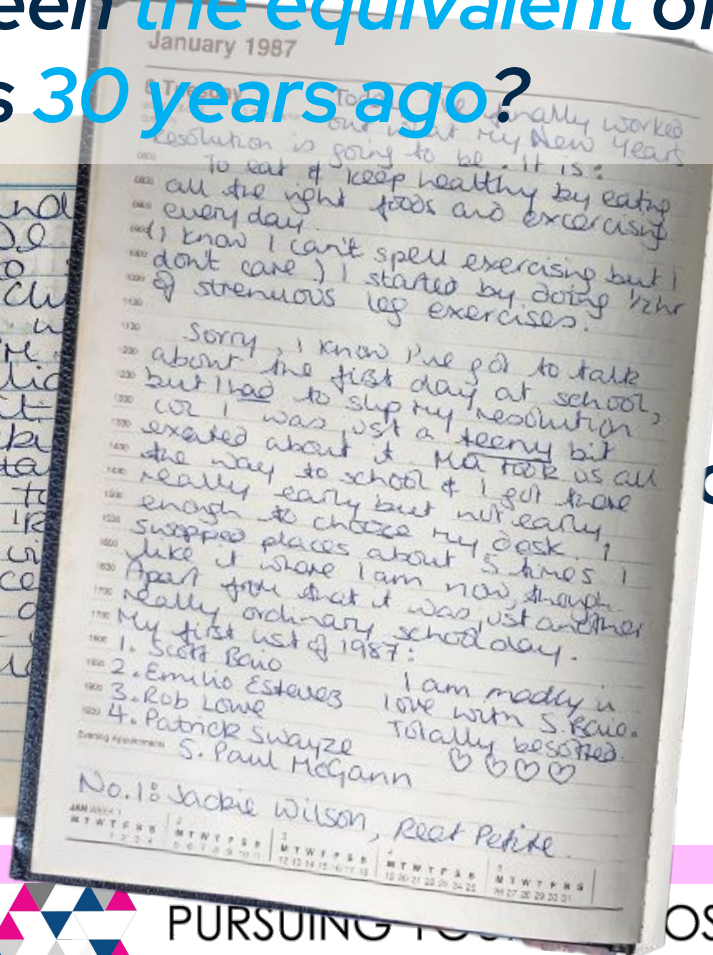 een the equivalent of
s 30 years ago?
January 1987
6 Tuesday Today I've finally worked
out what my New Years
resolution is going to be. It is:
To eat & keep healthy by eating
all the right foods and excercising
everyday.
(I know I can't spell exercising but I
dont care) I started by doing 1/2hr
of strenuous leg exercises.
Sorry, I know I've got to talk
about the first day at school,
but I had to slip my resolution
coz I was just a teeny bit
exceted about it. Ma took us all
the way to school & I got there
really early but not early
enough to choose my dask. I
swopped places about 5 times I
like it where I am now, though.
Apart from that it was just another
really ordinary school day.
My first list of 1987:
1. Scott Baio
2. Emilio Estevez
3. Rob Lowe
4. Patrick Swayze
5. Paul McGann
I am madly in
love with S. Baio.
Totally besotted.
♡ ♡ ♡ ♡
Evening Appointments
No.1: Jackie Wilson, Reet Petite.
JAN WEEK 1
M T W T F S S
1 2 3 4
2
M T W T F S S
5 6 7 8 9 10 11
3
M T W T F S S
12 13 14 15 16 17 18
4
M T W T F S S
19 20 21 22 23 24 25
5
M T W T F S S
26 27 28 29 30 31
PURSUING